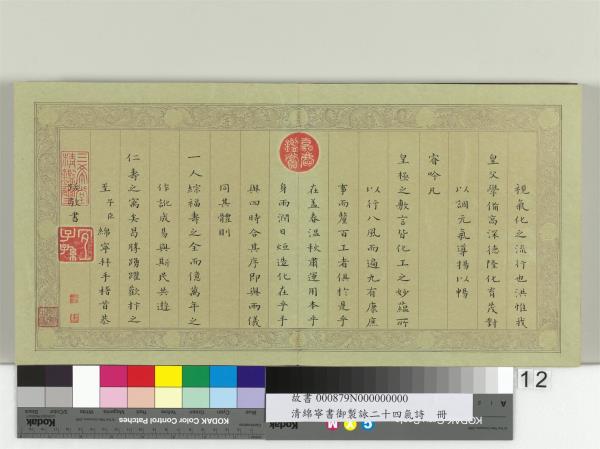 視氣化之流行也洪惟我
皇父學備高深德隆化育茂對
以調元氣導揚以暢
睿吟凡
皇極之敷言皆化工之妙蘊所
以行八風而遍九有康庶
事而釐百工者俱於是乎
在蓋春温秋肅運用本乎
身雨潤日烜造化在乎手
與四時合其序即與兩儀
同其體則
一人綜福壽之全而億萬年之
作訛成易與斯民共遊
仁壽之寓矣曷勝踴躍歡忭之
至子臣綿寧拜手稽首恭
跋敬書
12
故書 000879N000000000
清綿寧書御製詠二十四氣詩 冊
KODAK Color Control Patches